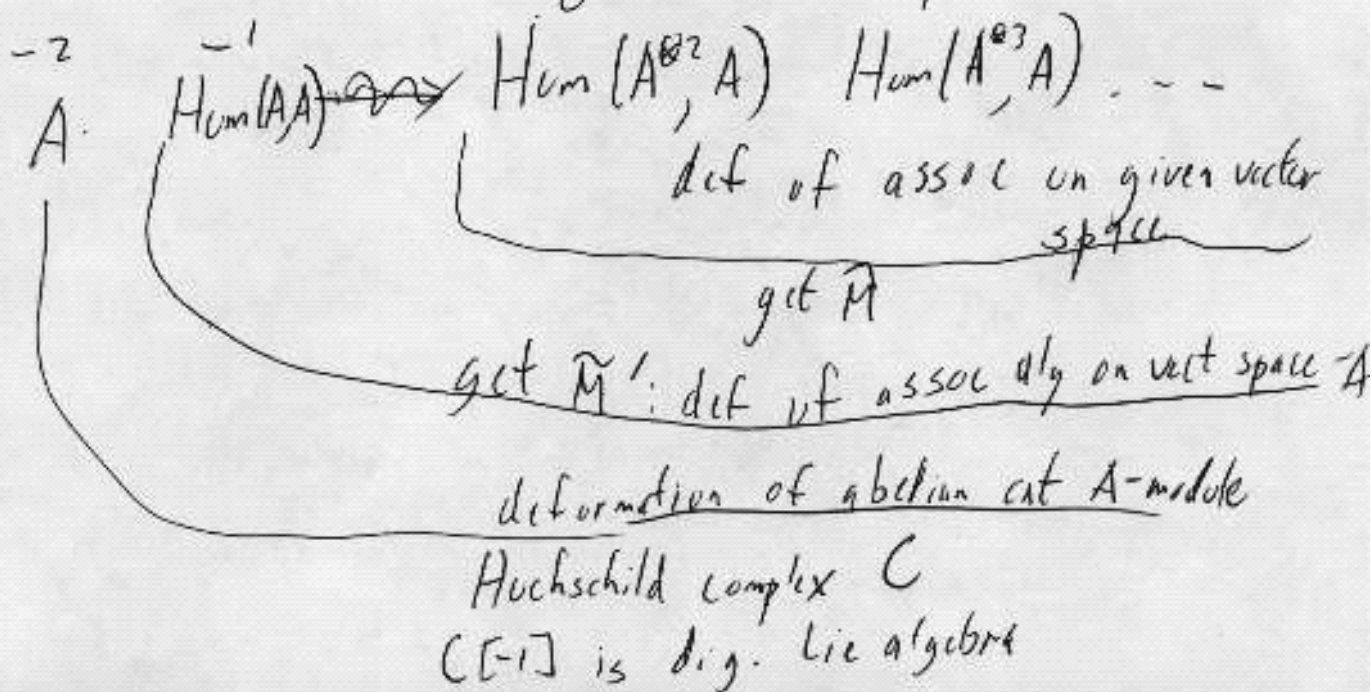 -2 -1
A. Hom(A,A) Hom(A^{⊗2}, A) Hom(A^{⊗3}, A) . - -
def of assoc on given vector
space
get M̃
get M̃': def of assoc alg on vect space -A
deformation of abelian cat A-module
Hochschild complex C
C[-1] is d.g. Lie algebra